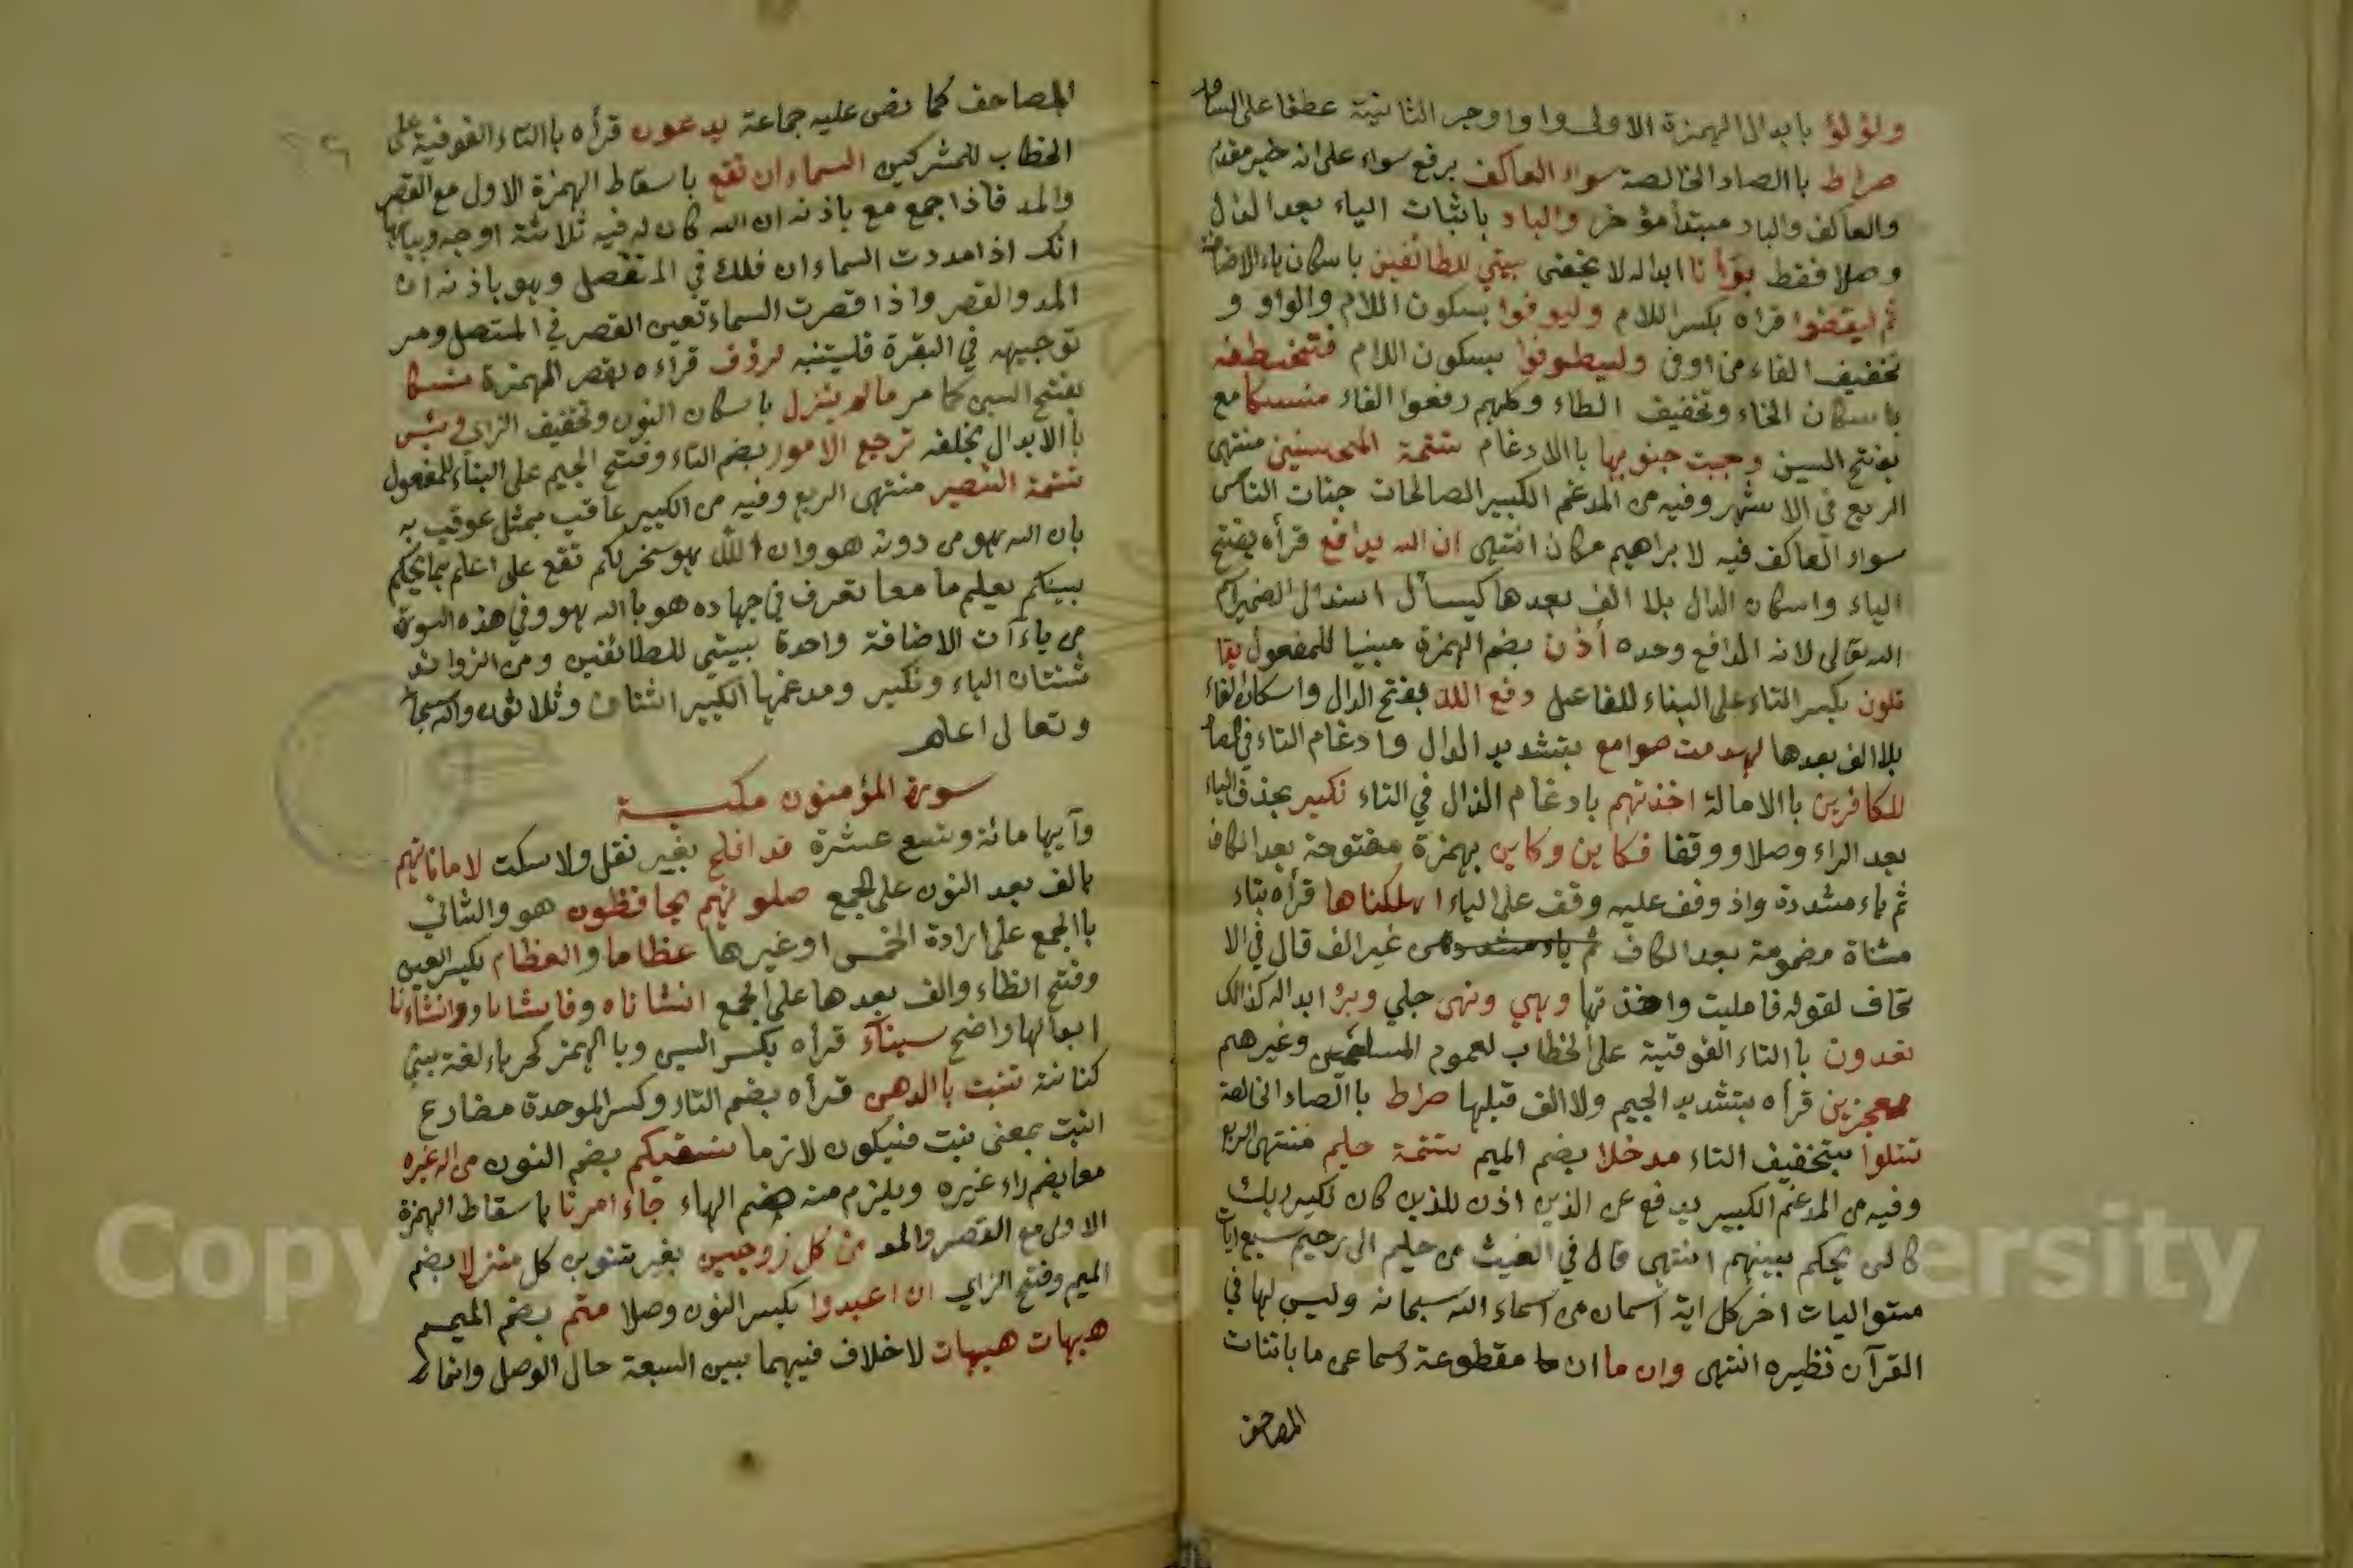 ولؤلؤ بابدال الهمزة الاولى واوا وجر الثانية عطفا على اساور
صراط باالصاد الخالصة سواء العاكف برفع سواء على انه خبر مقدم
والعاكف والباد مبتدأ مؤخر والباد باثبات الياء بعد الدال
وصلا فقط بوأنا ابداله لا يخفى بيتي للطائفين باسكان ياء الاضافة
ثم ليقضوا قراه بكسر اللام وليوفوا بسكون اللام والواو و
تخفيف الفاء من اوفى وليطوفوا بسكون اللام فتخطفه
باسكان الخاء وتخفيف الطاء وكلهم رفعوا الفاء منسكا مع
بفتح السين وجبت جنوبها باالادغام تتمة المحسنين منتهى
الربع في الاشهر وفيه من المدغم الكبير الصالحات جنات الناس
سواء العاكف فيه لابراهيم مكان انتهى ان الله يدافع قرأه بفتح
الياء واسكان الدال بلا الف بعدها كيسأل اسند الى ضمير اسم
الله تعالى لانه الدافع وحده أذن بضم الهمزة مبنيا للمفعول يقا
تلون بكسر التاء على البناء للفاعل دفع الله بفتح الدال واسكان الفاء
بلا الف بعدها لهدمت صوامع بتشديد الدال وادغام التاء في الصاد
للكافرين باالامالة اخذتهم بادغام الذال في التاء نكير بحذف الياء
بعد الراء وصلا ووقفا فكاين وكاين بهمزة مفتوحة بعد الكاف
ثم ياء مشددة واذ وقف عليه وقف على الياء اهلكناها قرأه بتاء
مثناة مضمومة بعد الكاف ثم ياء مشددة من غير الف قال في الا
تحاف لقوله فامليت واخذتها وهي ونهى جلي وبئر ابداله كذالك
تعدون باالتاء الفوقية على الخطاب لعموم المسلمين وغيرهم
معجزين قرأه بتشديد الجيم ولا الف قبلها صراط باالصاد الخالصة
تتلوا بتخفيف التاء مدخلا بضم الميم تتمة حليم منتهى الربع
وفيه من المدغم الكبير يدفع عن الذين اذن للذين كان نكير ربك
كالف يحكم بينهم انتهى قال في الغيث من حليم الى رحيم سبع ايات
متواليات اخر كل اية اسمان من اسماء الله سبحانه وليس لها في
القرآن نظيره انتهى وان ما ان ما مقطوعة
المصاحف
المصاحف كما نص عليه جماعة يدعون قرأه باالتاء الفوقية على
الخطاب للمشركين السماء ان تقع باسقاط الهمزة الاول مع القصر
والمد فاذا جمع مع باذنه ان الله كان له فيه ثلاثة اوجه وبيانها
انك اذا مددت السماء ان فلك في المنفصل وهو باذنه ان
المد والقصر واذا قصرت السماء تعين القصر في المتصل ومر
توجيهه في البقرة فليتنبه لرؤف قراءه بقصر الهمزة منسكا
بفتح السين كما مر مالم ينزل باسكان النون وتخفيف الزاي وبئس
باالابدال بخلفه ترجع الامور بضم التاء وفتح الجيم على البناء للمفعول
تتمة النصير منتهى الربع وفيه من الكبير عاقب بمثل عوقب به
بان الله هو من دونه هو وان الله هو سخر لكم تقع على اعلم بما يحكم
بينكم يعلم ما معا تعرف في جهاده هو باالله هو وفي هذه السورة
من ياءآت الاضافة واحدة بيتي للطائفين ومن الزوائد
ثنتان الباء ونكير ومدغمها الكبير اثنان وثلاثون والله سبحانه
وتعالى اعلم
سورة المؤمنون مكية
وآيها مائة وتسع عشرة قد افلح بغير نقل ولا سكت لاماناتهم
بالف بعد النون على الجمع صلوتهم يحافظون هو والثاني
باالجمع على ارادة الخمس او غيرها عظاما والعظام بكسر العين
وفتح الظاء والف بعدها على الجمع انشاناه وفانشانا وانشأنا
ابدالها واضح سيناء قرأه بكسر السين وباالهمز كحرباء لغة بني
كنانة تنبت باالدهن قرأه بضم التاء وكسر الموحدة مضارع
انبت بمعنى نبت فيكون لازما نسقيكم بضم النون من اله غيره
معا بضم راء غيره ويلزم منه ضم الهاء جاء امرنا باسقاط الهمزة
الاولى مع القصر والمد من كل زوجين بغير تنوين كل منزلا بضم
الميم وفتح الزاي ان اعبدوا بكسر النون وصلا متم بضم الميم
هيهات هيهات لا خلاف فيهما بين السبعة حال الوصل وانما